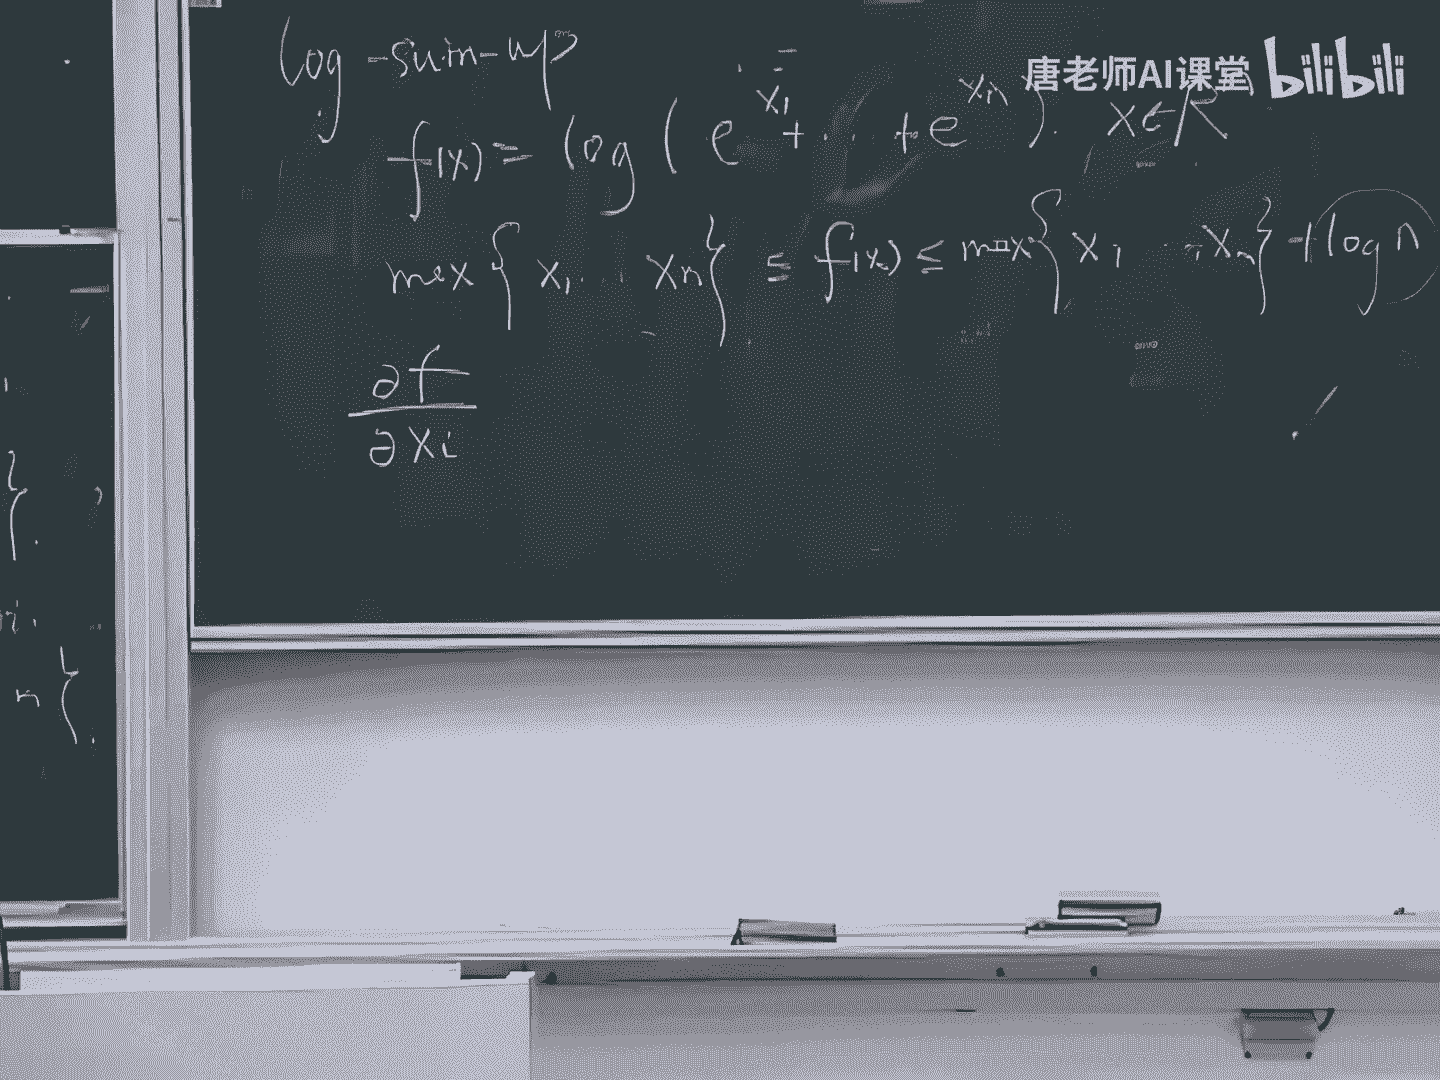 唐老师AI课堂 bilibili
log-sum-up
f(x) = log ( e^{x_1} + ... + e^{x_n} ). x∈R^n
max { x_1 .. x_n } ≤ f(x) ≤ max { x_1 .. , x_n } + log n
∂f
∂x_i